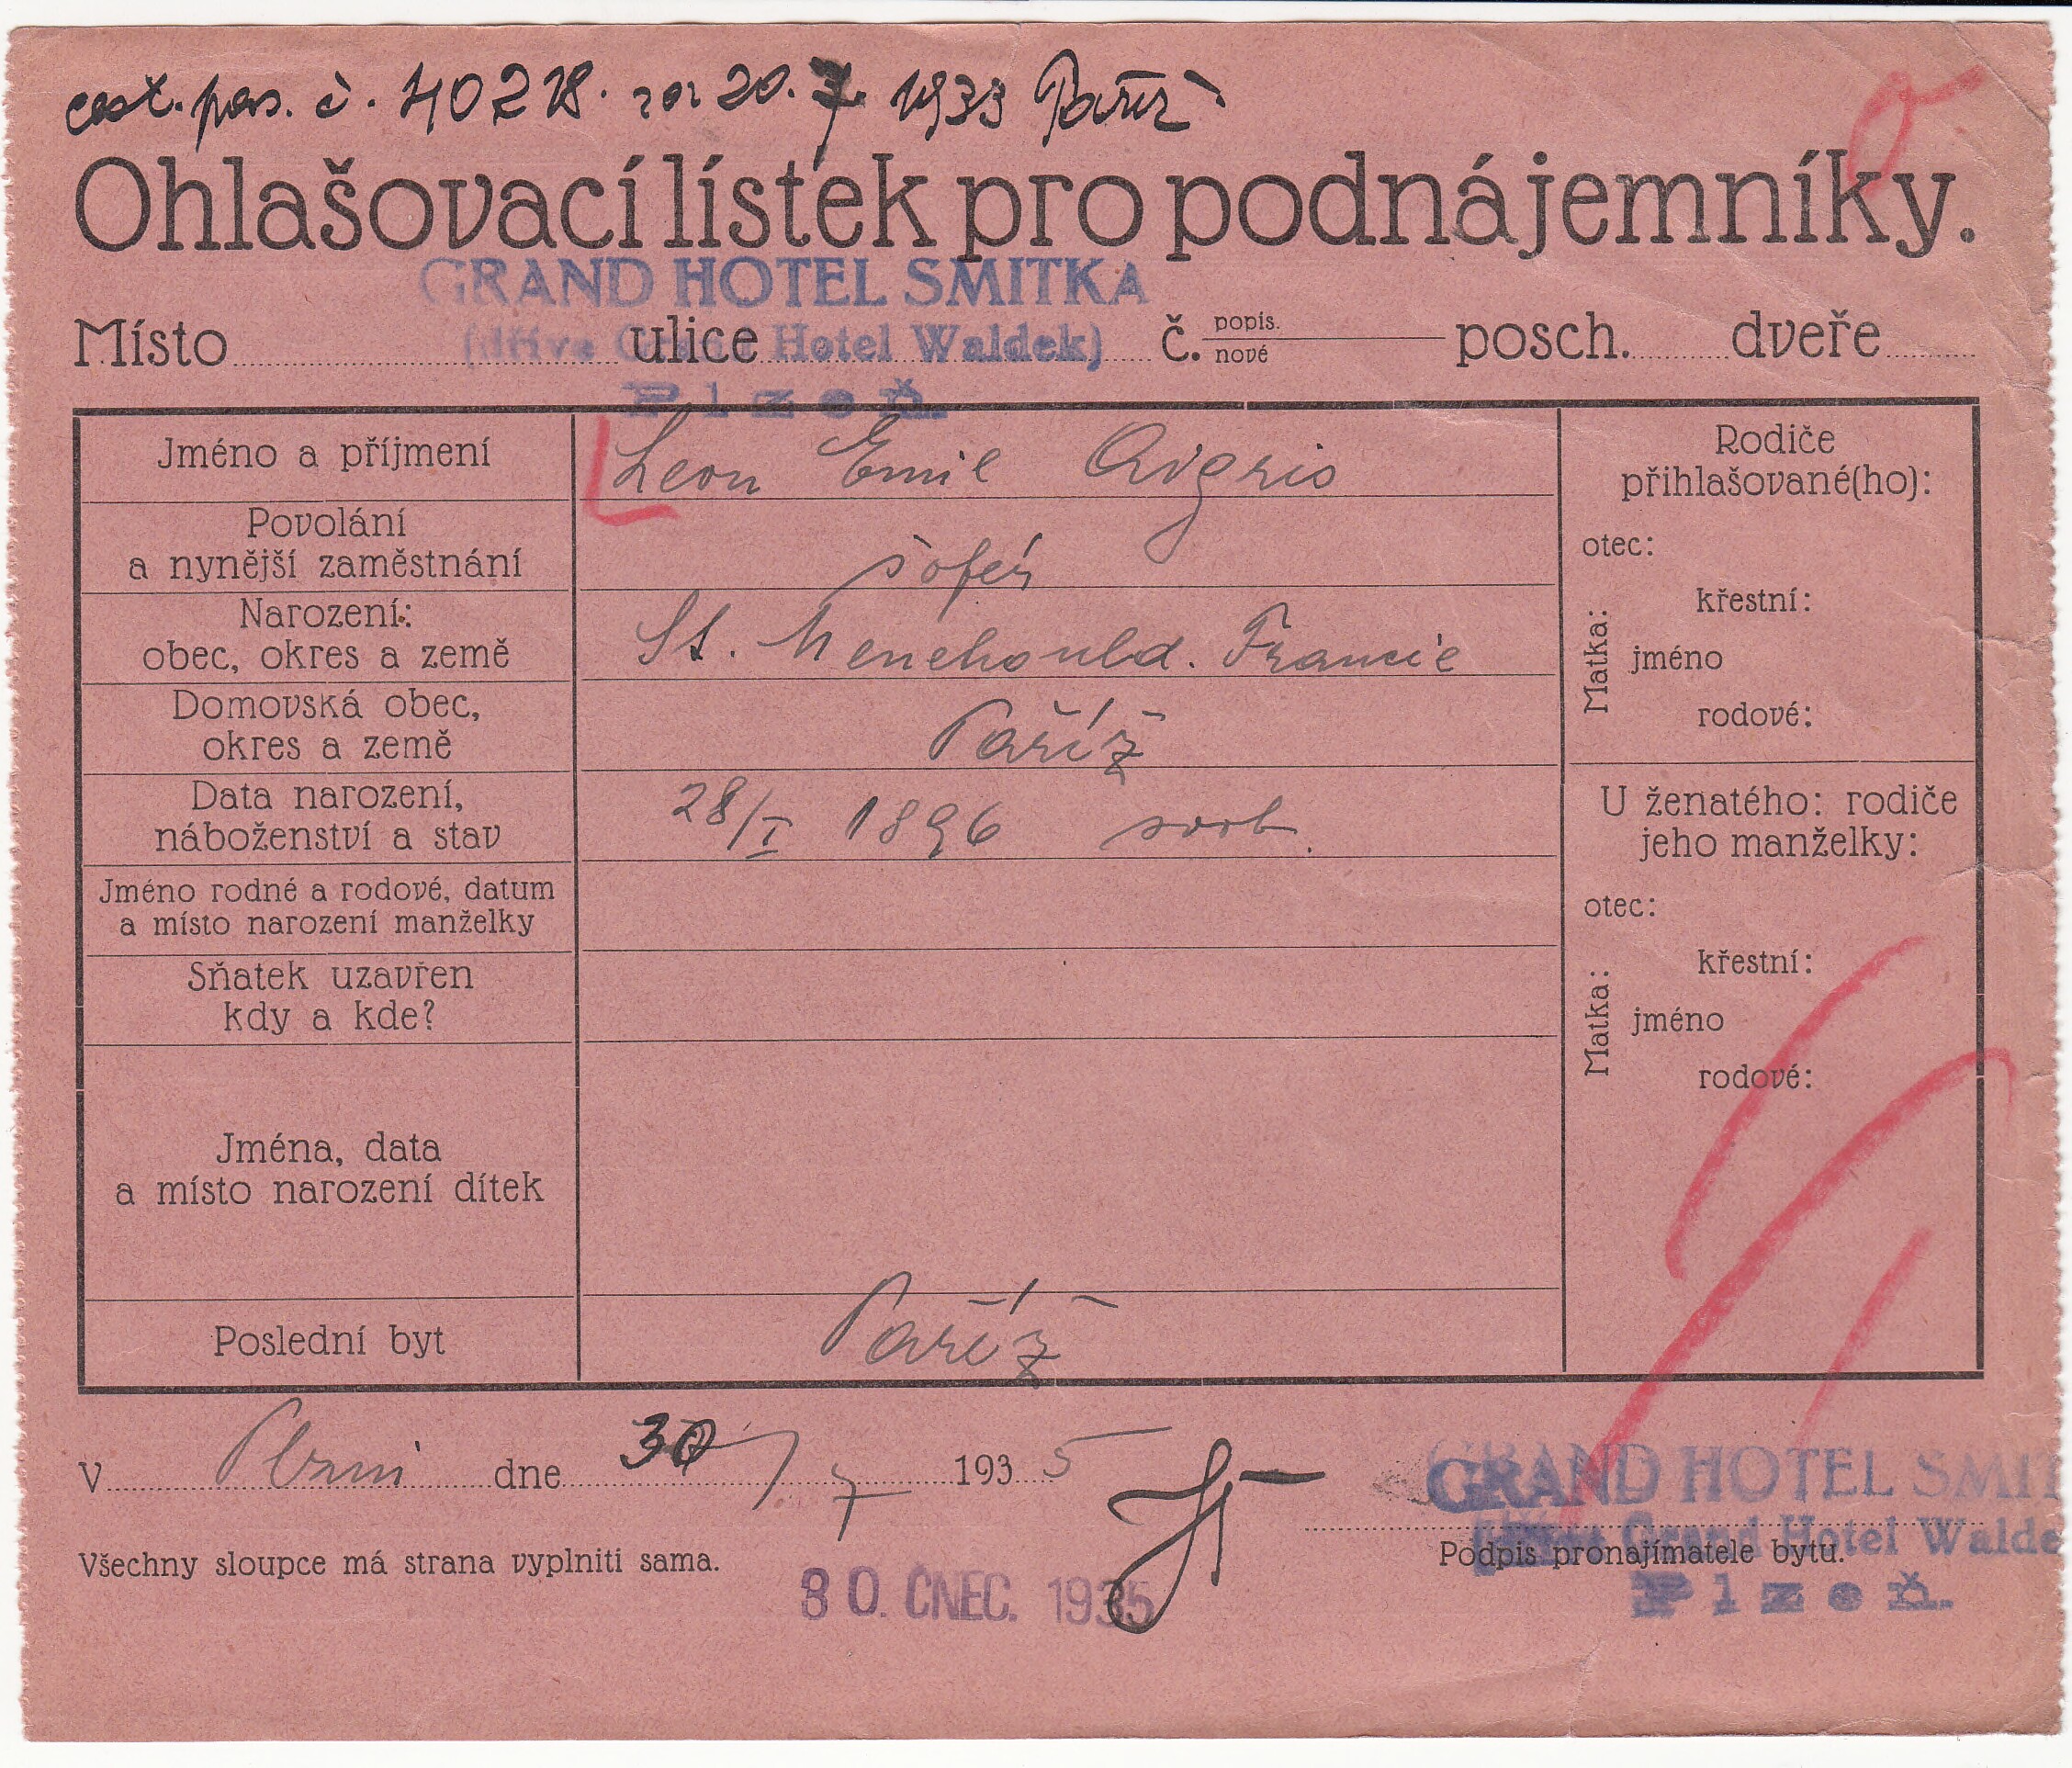 cest. pas. č. 40218. 20. 7. 1933 Paříž
Ohlašovací lístek pro podnájemníky.
GRAND HOTEL SMITKA
Místo ulice č. popis. nové posch. dveře
(dříve Grand Hotel Waldek)
Plzeň.
Jméno a příjmení
Leon Emil Aigris
Povolání
a nynější zaměstnání
šofér
Narození:
obec, okres a země
St. Menehould. Francie
Domovská obec,
okres a země
Paříž
Data narození,
náboženství a stav
28/I 1896 svob.
Jméno rodné a rodové, datum
a místo narození manželky
Sňatek uzavřen
kdy a kde?
Jména, data
a místo narození dítek
Poslední byt
Paříž
Rodiče
přihlašované(ho):
otec:
Matka:
křestní:
jméno
rodové:
U ženatého: rodiče
jeho manželky:
otec:
Matka:
křestní:
jméno
rodové:
V Plzni dne 30/7 1935
GRAND HOTEL SMIT
(dříve Grand Hotel Walde
Plzeň.
Všechny sloupce má strana vyplniti sama.
Podpis pronajímatele bytu.
30. ČNEC. 1935